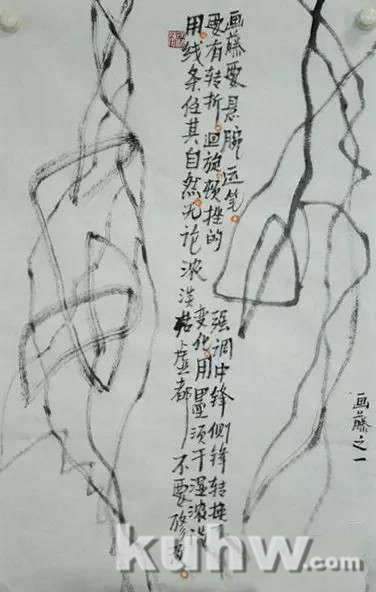 画藤之一
画藤要悬腕运笔。强调中锋侧锋转换
要有转折。迴旋。顿挫的变化。用墨须干湿浓淡
用线条任其自然。无论浓淡枯虚都不要修
kuhw.com